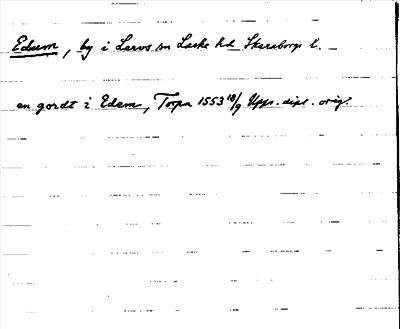 Edum, by i Larvs sn Laske hd Skaraborgs l.
en gordt i Edem, Torpa 1553 18/9 Upps. dipl. orig.